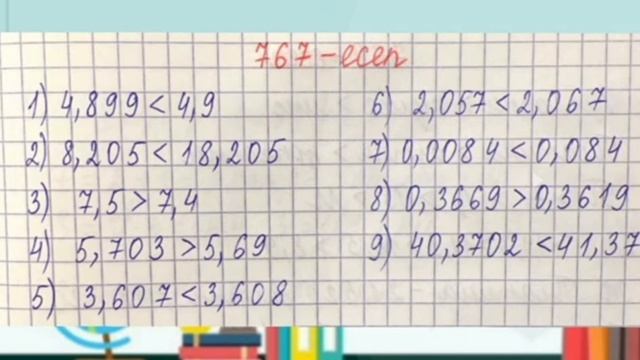 767-есеп
1) 4,899 < 4,9
2) 8,205 < 18,205
3) 7,5 > 7,4
4) 5,703 > 5,69
5) 3,607 < 3,608
6) 2,057 < 2,067
7) 0,0084 < 0,084
8) 0,3669 > 0,3619
9) 40,3702 < 41,37